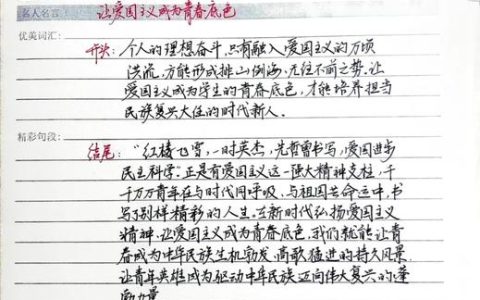 名人名言： 让爱国主义成为青春底色
优美词汇：
开头： 个人的理想奋斗，只有融入爱国主义的万顷
洪流，方能形成排山倒海，无往不前之势。让
爱国主义成为学生的青春底色，才能培养担当
民族复兴大任的时代新人。
精彩句段：
结尾： “红楼飞雪，一时英杰，先哲曾书写，爱国进步
民主科学。正是有爱国主义这一强大精神支柱，千
千万万青年在与时代同呼吸、与祖国共命运中，书
写了别样精彩的人生。在新时代弘扬爱国主义
精神，让爱国主义成为青春底色，我们就能让青
春成为中华民族生机勃发、高歌猛进的持久风景，
让青年英雄成为驱动中华民族迈向伟大复兴的蓬
勃力量